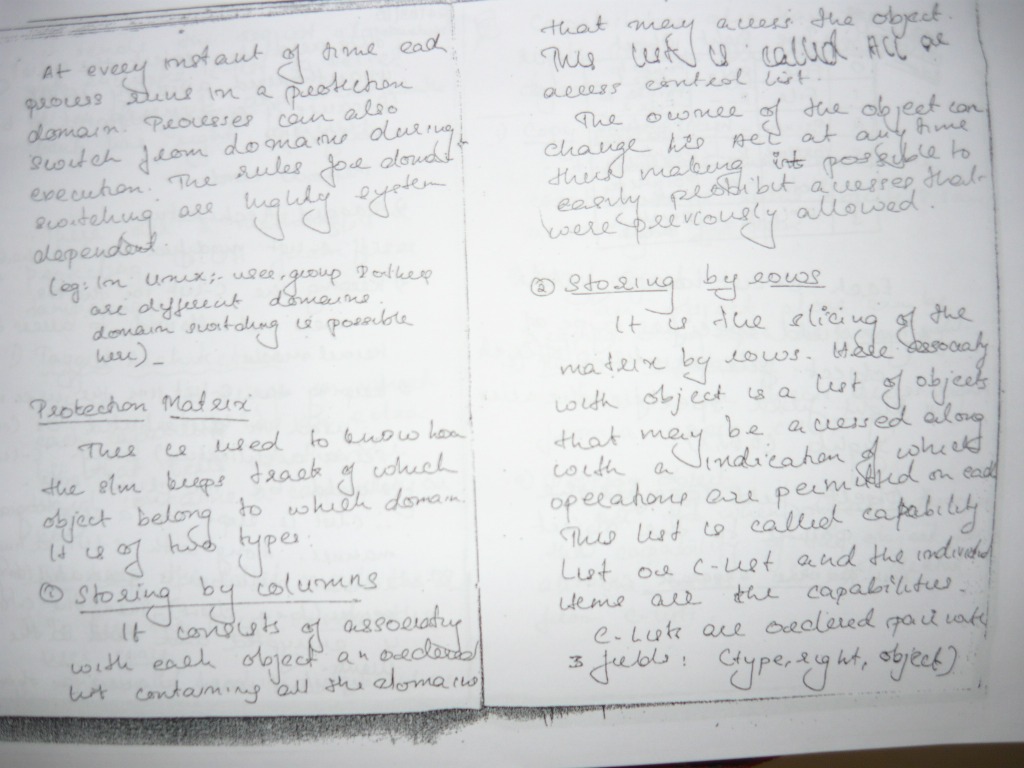 At every instant of time each
process runs in a protection
domain. Processes can also
switch from domains during
execution. The rules for domain
switching are highly system
dependent.
(eg: In Unix;- user, group & others
are different domains.
domain switching is possible
here)_
Protection Matrix
This is used to know how
the s/m keeps track of which
object belong to which domain.
It is of two types:
① Storing by columns
It consists of associating
with each object an ordered
list containing all the domains
that may access the object.
This list is called ACL or
access control list.
The owner of the object can
change his ACL at any time
thus making it possible to
easily prohibit accesses that
were previously allowed.
② Storing by rows
It is the slicing of the
matrix by rows. Here associaty
with object is a list of objects
that may be accessed along
with a indication of which
operations are permitted on each
This list is called capability
List or C-list and the individual
items are the capabilities.
C-lists are ordered pair with
3 fields: (type, right, object)